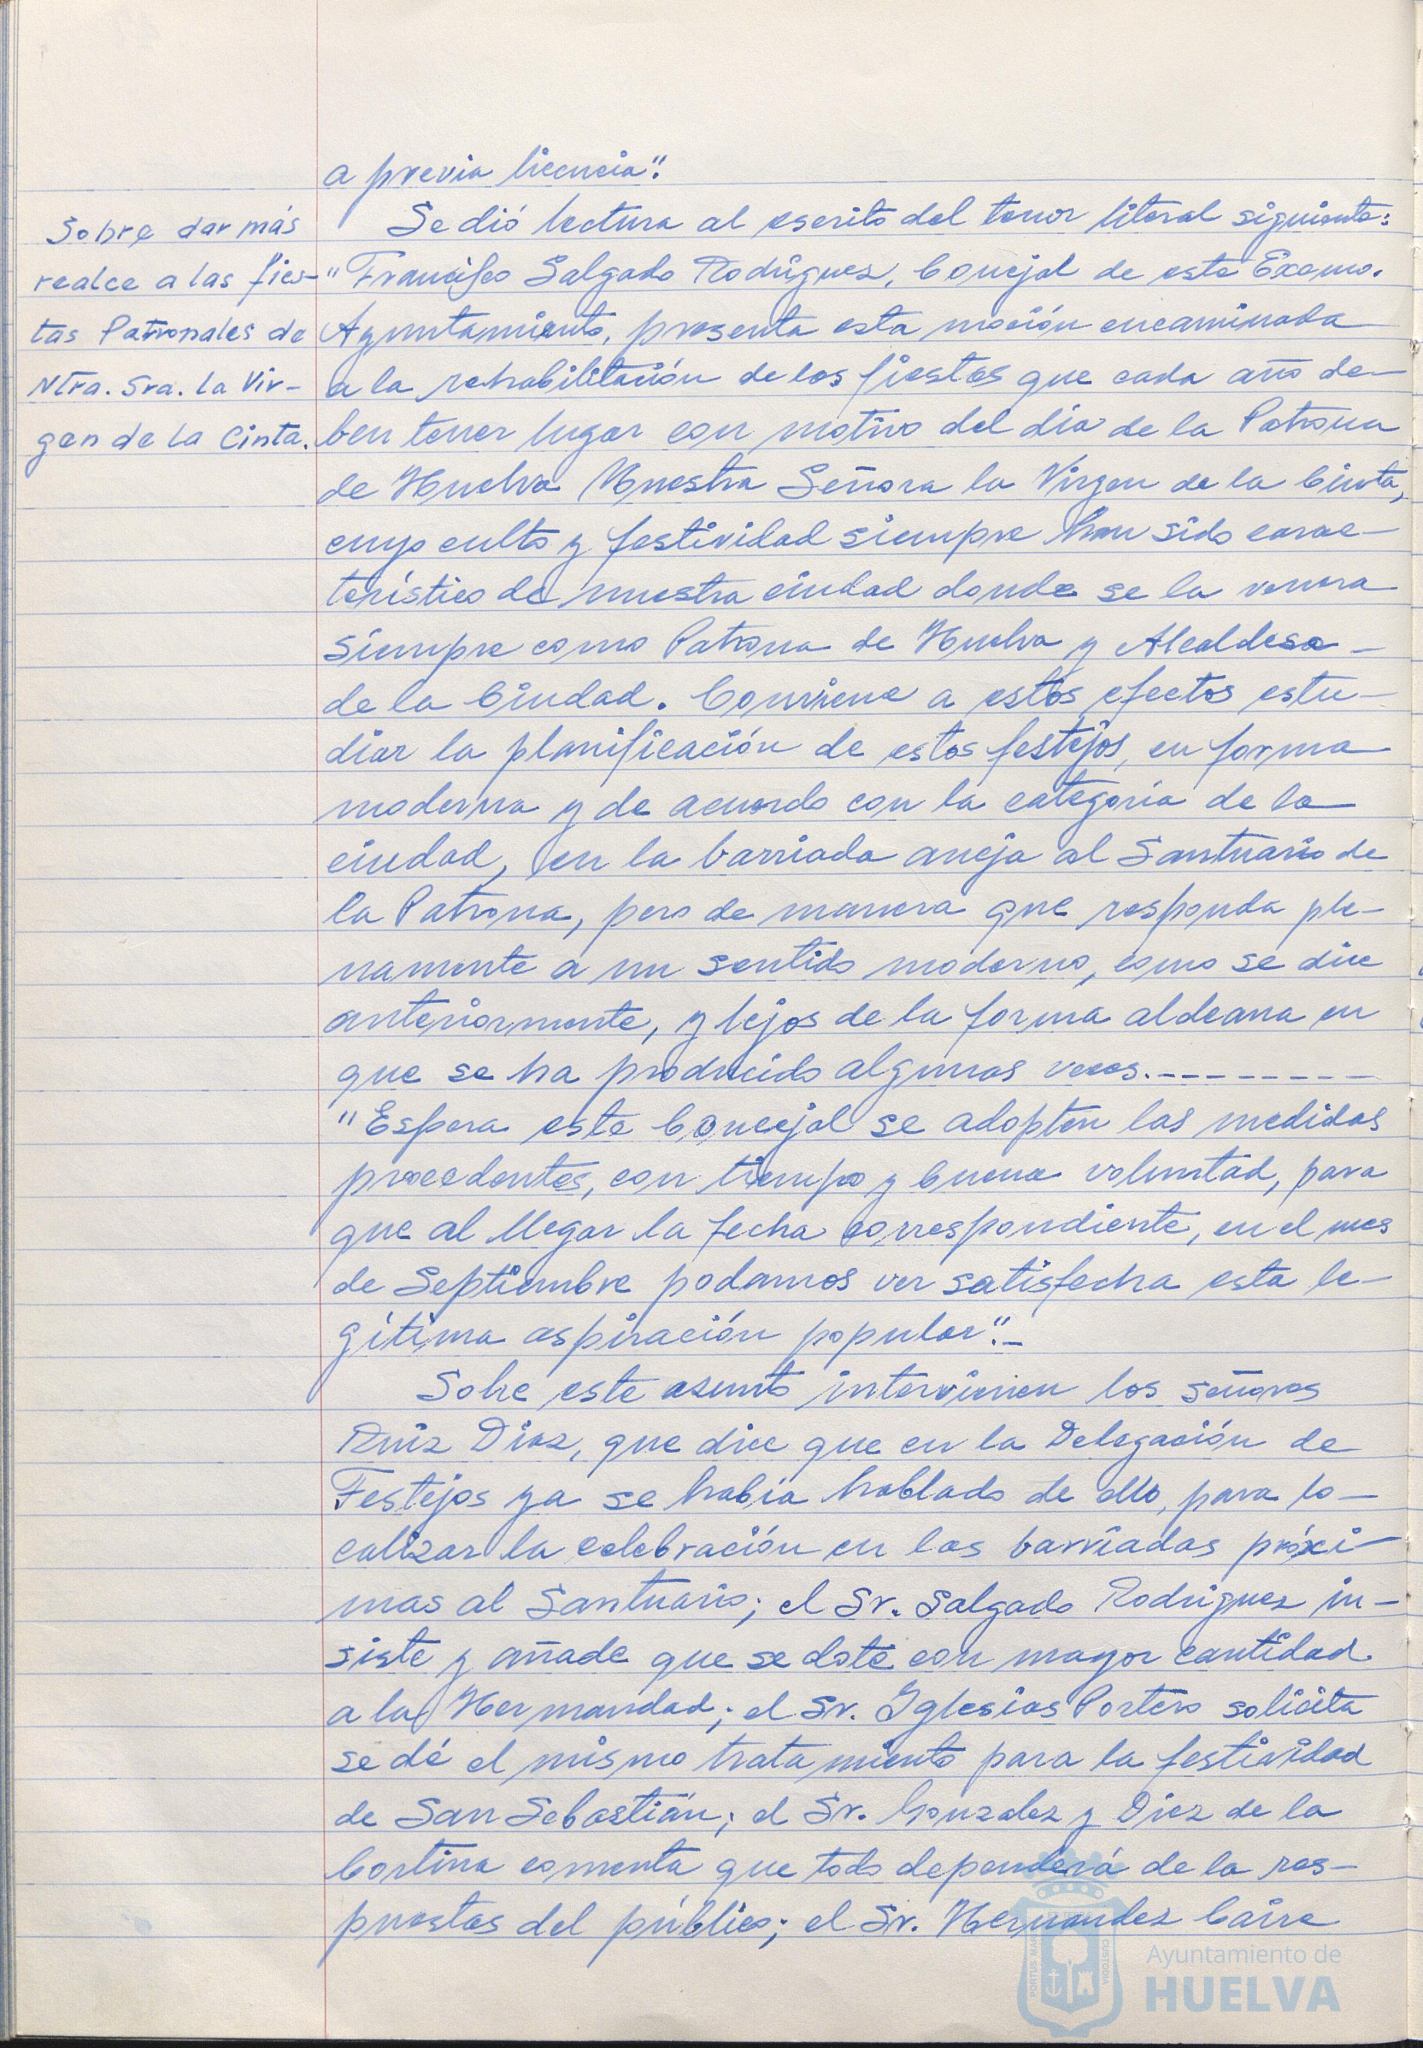 a previa licencia".
Sobre dar más
realce a las fies-
tas Patronales de
Ntra. Sra. La Vir-
gen de La Cinta.
Se dió lectura al escrito del tenor literal siguiente:
"Francisco Salgado Rodríguez, Concejal de este Excmo.
Ayuntamiento, presenta esta moción encaminada
a la rehabilitación de las fiestas que cada año de-
ben tener lugar con motivo del día de la Patrona
de Huelva Nuestra Señora la Virgen de la Cinta,
cuyo culto y festividad siempre han sido carac-
terístico de nuestra ciudad donde se la venera
siempre como Patrona de Huelva y Alcaldesa
de la Ciudad. Conviene a estos efectos estu-
diar la planificación de estos festejos, en forma
moderna y de acuerdo con la categoría de la
ciudad, en la barriada aneja al Santuario de
la Patrona, pero de manera que responda ple-
namente a un sentido moderno, como se dice
anteriormente, y lejos de la forma aldeana en
que se ha producido algunas veces.---------
"Espera este Concejal se adopten las medidas
procedentes, con tiempo y buena voluntad, para
que al llegar la fecha correspondiente, en el mes
de Septiembre podamos ver satisfecha esta le-
gítima aspiración popular".-
Sobre este asunto intervienen los señores
Ruiz Díaz, que dice que en la Delegación de
Festejos ya se había hablado de ello, para lo-
calizar la celebración en las barriadas próxi-
mas al Santuario; el Sr. Salgado Rodríguez in-
siste y añade que se dote con mayor cantidad
a la Hermandad; el Sr. Iglesias Portero solicita
se dé el mismo tratamiento para la festividad
de San Sebastián; el Sr. González y Díez de la
Cortina comenta que todo dependerá de la res-
puestas del público; el Sr. Hernandez Caire
PORTUS MARIS
CUSTODIA
Ayuntamiento de
HUELVA